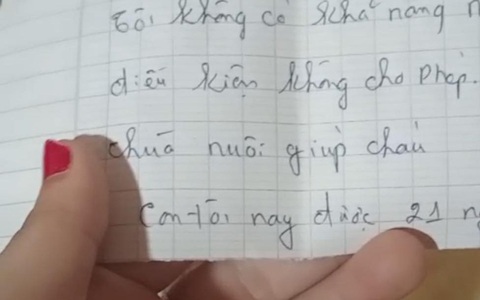 Tôi không có khả năng
điều kiện không cho phép.
chùa nuôi giúp cháu
Con tôi nay được 21